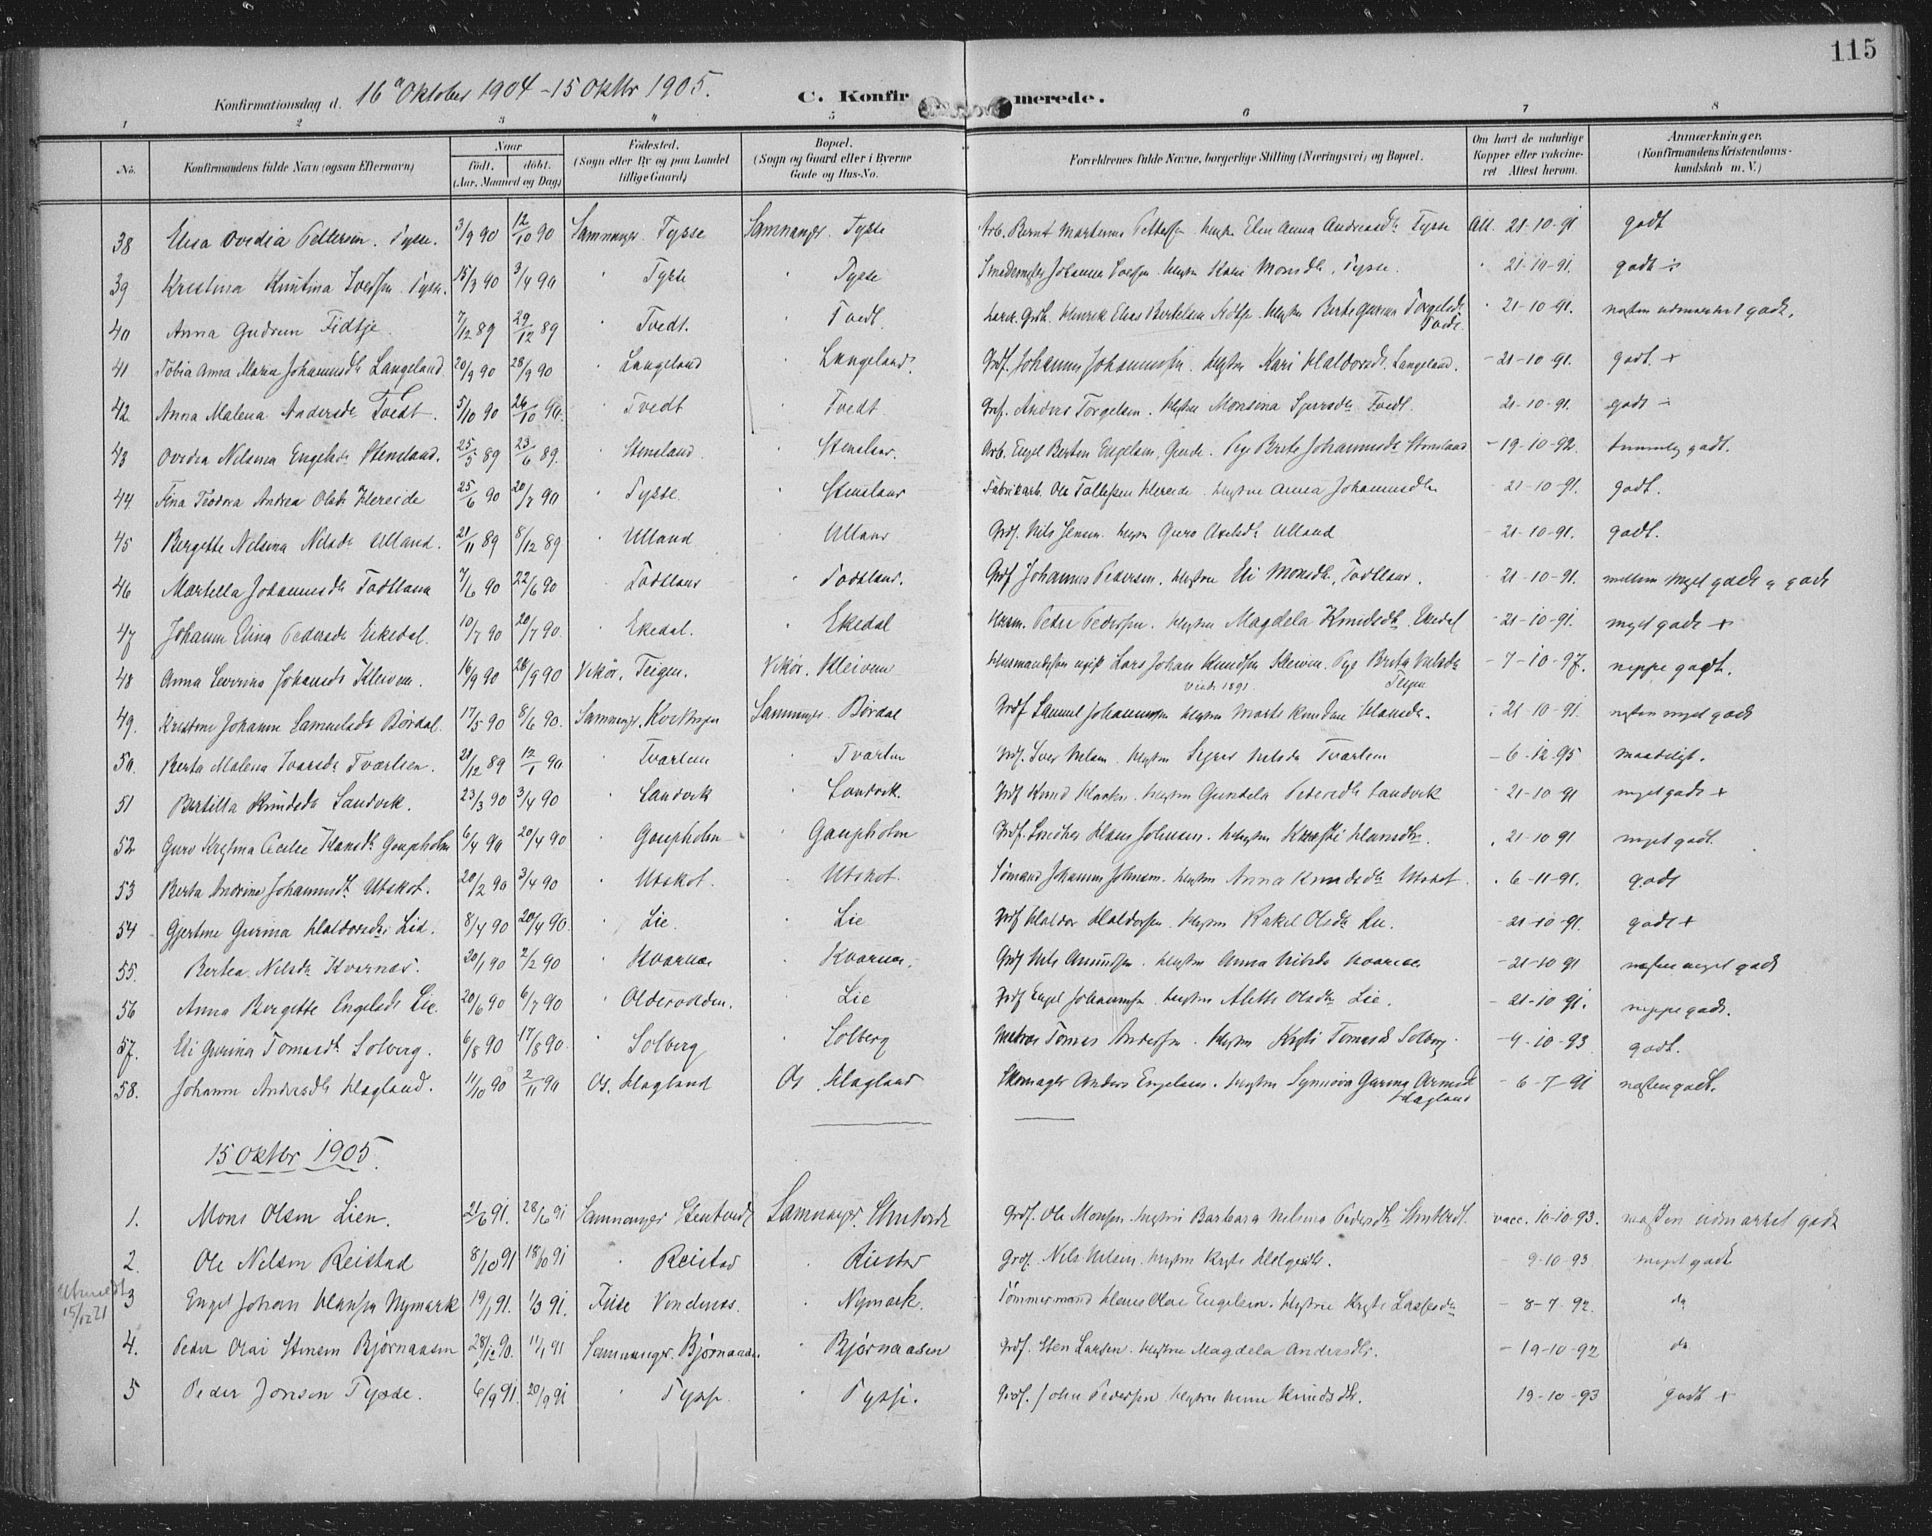 115
Konfirmationsdag d. 16 Oktober 1904 - 15 Oktbr 1905. C. Konfirmerede.
1 2 3 4 5 6 7 8
No. Konfirmandens fulde Navn (ogsaa Efternavn) Naar født. døbt. (Aar, Maaned og Dag) Fødested. (Sogn eller By og paa Landet tillige Gaard) Bopæl. (Sogn og Gaard eller i Byerne Gade og Hus-No. Forældrenes fulde Navne, borgerlige Stilling (Næringsvei) og Bopæl. Om havt de naturlige Kopper eller vakcineret Attest herom. Anmærkninger. (Konfirmandens Kristendomskundskab m. V.)
38 Elisa Ovedia Pettersen. Tysse. 3/9 90 12/10 90 Samnanger. Tysse Samnanger. Tysse Arb. Bernt Martinus Pettersen Hustru Elen Anna Andreasdtr Tysse Att. 21-10-91 godt
39 Kristina Knutina Iversen Tysse. 15/3 90 3/4 90 " Tysse " Tysse Johannes Iversen Hustru Kari Monsdtr. Tysse. " 21-10-91. godt
40 Anna Gudrun Fidtje. 7/12 89 29/12 89 " Tvedt. " Tvedt. Henrik Elias Bertelsen Hustru Berte Gurina Torgelsdtr Tvedt. " 21-10-91. næsten udmærket godt.
41 Tobia Anna Maria Johannesdtr Langeland 20/9 90 28/9 90 " Langeland " Langeland. Grdf. Johannes Johannessen. Hustru Kari Haldorsdtr. Langeland. - 21-10-91. godt +
42 Anna Malena Andersdtr Tvedt. 5/10 90 26/10 90. " Tvedt " Tvedt. Grdf. Anders Torgelsen. Hustru Monsina Sjursdtr Tvedt. 21-10-91. godt
43 Ovedia Nelsina Engelsdtr Stensland. 25/5 89 23/6 89. " Stensland. " Stensland. Arb. Engel Bertin Engelsen, Gjerde. Pige Brite Johannesdtr Stensland - 19-10-92. temmelig godt.
44 Fina Teodora Andrea Olsdtr Hereide 25/6 90 20/7 90 " Tysse. " Stensland Fabrikarb. Ole Tollefsen Hereide. Hustru Anna Johannesdtr - 21-10-91. godt.
45 Bergette Nelsina Nelsdtr Ulland. 21/11 89 8/12 89 " Ulland " Ulland Grdf. Nils Jensen. Hustru Guro Axelsdtr Ulland - 21-10-91. godt.
46 Martella Johannesdtr Todtland 7/6 90 22/6 90 " Todtland " Todtland. Grdf Johannes Pedersen. Hustru Eli Monsdtr. Todtland. - 21-10-91. mellem meget godt og godt
47 Johanne Elina Pedersdtr Eikedal. 10/7 90 20/7 90. " Ekedal. " Ekedal Husm. Peter Pedersen. Hustru Magdela Knudsdtr. Ekedal - 21-10-91. meget godt +
48 Anna Severina Johansdtr Kleiven. 16/9 90 28/9 90 Vikör. Teigen. Vikör. Kleiven Lars Johan Knudsen Kleiven. Pige Brita Nelsdtr Teigen Viede 1891 - 7-10-97. neppe godt.
49. Kristine Johanne Samuelsdtr Børdal. 17/5 90 8/6 90. Samnanger. Samnanger. Børdal Grdf Samuel Johannessen Hustru Marte Hansdtr. . 21-10-91. næsten meget godt
50. Berta Malena Ivarsdtr Tvartien. 28/12 89 12/1 90 " Tvartien " Tvartien Grdf. Iver Nelsen. Hustru Sigrid Nelsdtr Tvartien - 6-12-95 maadeligt.
51 Bertilla Knudsdtr Sandvik. 23/3 90 3/4 90 " Sandvik " Sandvik. Grdf Knud Hansen. Hustru Gundela Pedersdtr Sandvik " 21-10-91 meget godt +
52 Guro Kristina Cecilie Hansdtr Gaupholm 6/4 90 20/4 90 " Gaupholm " Gaupholm Grdf. Hans Johnsen. Hustru Hansdtr. . 21-10-91 meget godt.
53 Berta Andrine Johannesdtr Utskot. 20/2 90 3/4 90 " Utskot. " Utskot. Sømand Johannes Johnsen. Hustru Anna Knudsdtr Utskot. . 6-11-91. godt
54 Gjertine Gurina Haldorsdtr Lid. 8/4 90 20/4 90 " Lie. " Lie Grdf Haldor Haldorsen. Hustru Rakel Olsdtr Lie. - 21-10-91. godt +
55. Bertea Nelsdtr Kvarnæs. 20/1 90 2/2 90 " Kvarnæs " Kvarnæs. Grdf Nels Amundsen. Hustru Anna Nelsdtr Kvarnæs - 21-10-91 næsten meget godt
56 Anna Bergette Engelsdtr Lie. 20/6 90 6/7 90 " Oldervolden. " Lie Grdf Engel Johannessen. Hustru Alette Olsdtr Lie. - 21-10-91. neppe godt.
57. Eli Gurina Tomasdtr Solberg. 6/8 90 17/8 90. " Solberg " Solberg Tomas Andersen. Hustru Kristi Tomasdtr Solberg. - 4-10-93 godt.
58. Johanne Andersdtr Hagland. 11/10 90 2/11 90 Os. Hagland Os Hagland Skomager Anders Engelsen. Hustru Synnøva Gurina Arnesdtr Hagland - 6-7-91 næsten godt.
15 Oktbr 1905.
1. Mons Olsen Lien. 21/6 91. 28/6 91 Samnanger Samnanger. Grdf. Ole Monsen Hustru Barbara Nelsina Pedersdtr vacc. 10-10-93. næsten udmærket godt
2. Ole Nelsen Reistad 8/10 91 18/10 91 " Reistad " Reistad Grdf. Nels Nelsen. Hustru Helgesdtr. - 9-10-93 meget godt
15/12 21
3 Engel Johan Hansen Nymark 19/1 91. 1/3 91. Fuse Vindenes. " Nymark. Tømmermand Hans Olai Engelsen. Hustru Lassesdtr - 8-7-92. do
4. Peder Olai Stensen Bjørnaasen 28/12 90. 11/1 91 Samnanger. Bjørnaasen " Bjørnaasen Grdf. Sten Larsen. Hustru Magdela Andersdtr. - 19-10-92 do
5 Peder Jonsen Tysse. 6/9 91. 20/9 91 " Tysse. " Tysse. Grdf. John Pedersen Hustru Anna Knudsdtr. 19-10-93 godt +